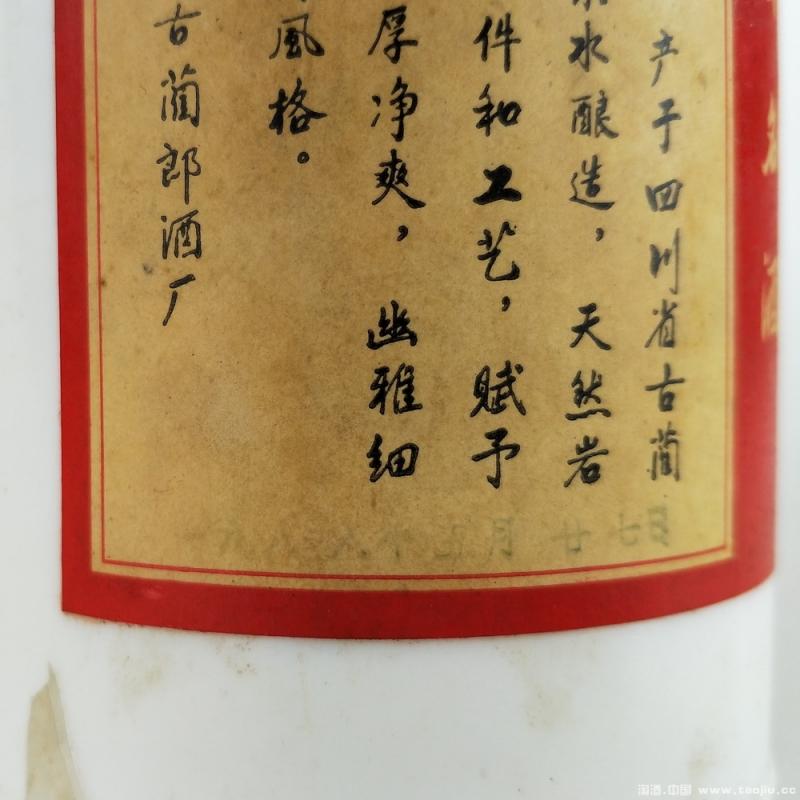 产于四川省古蔺
水酿造，天然岩
件和工艺，赋予
厚净爽，幽雅细
風格。
古蔺郎酒厂
年五月廿七日
酒
淘酒.中国 www.taojiu.cc